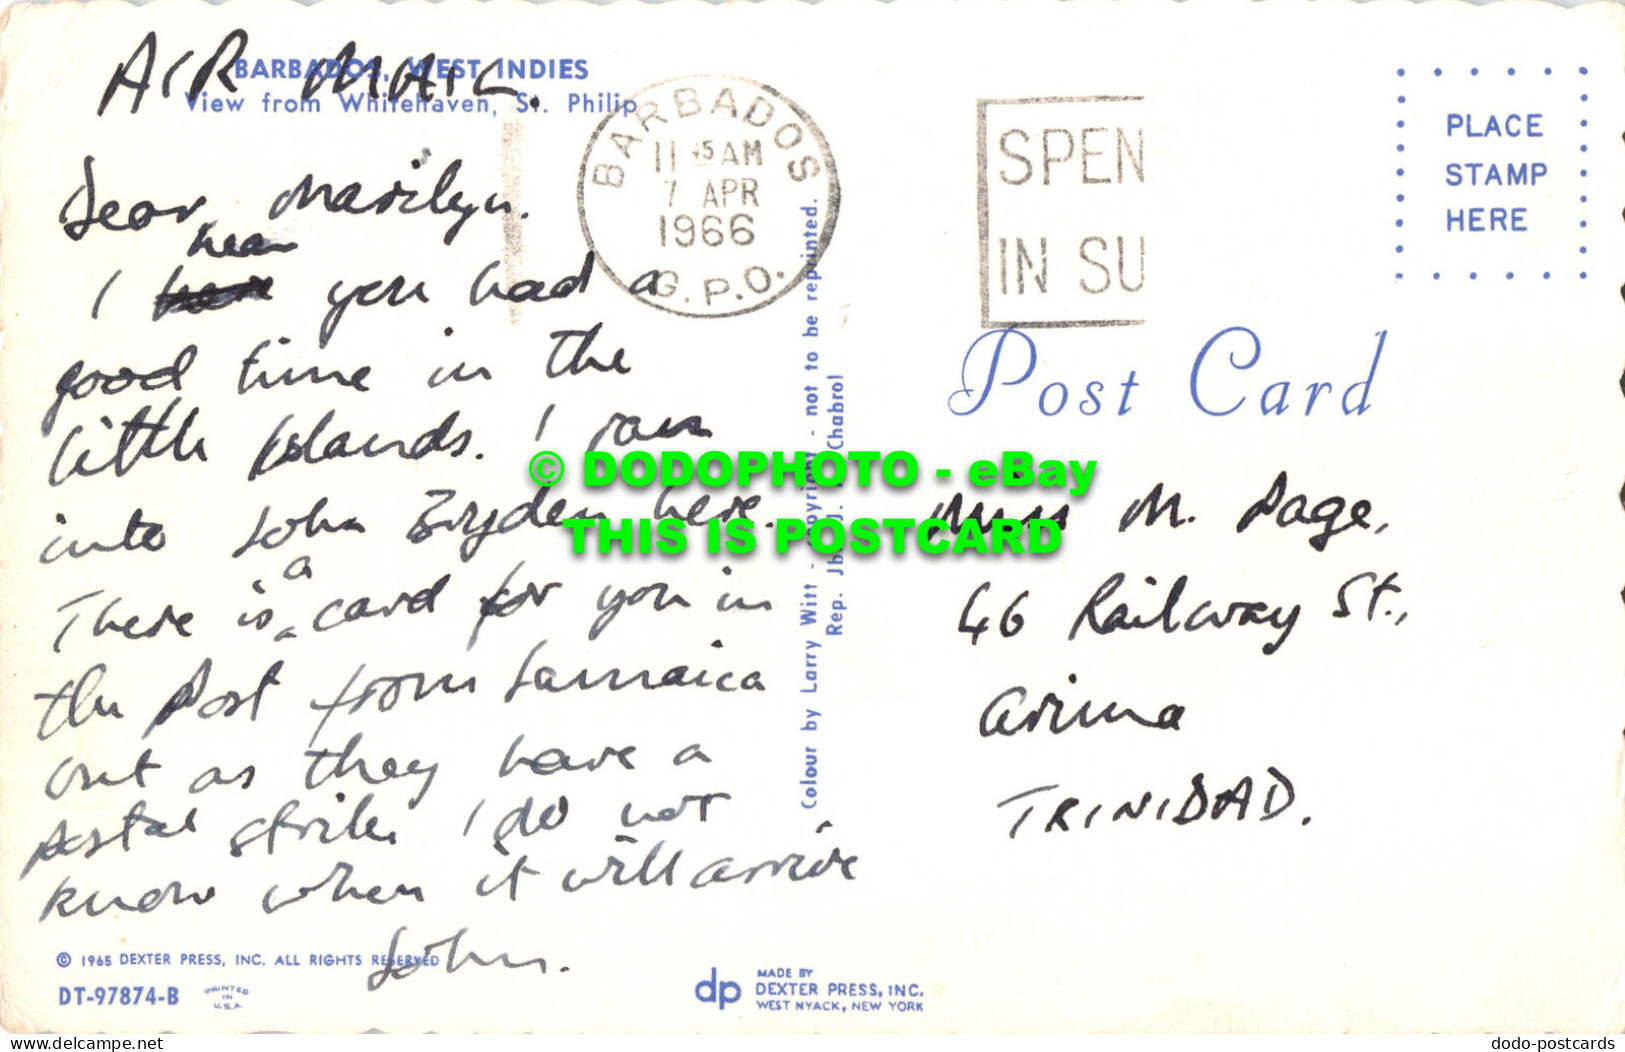 AIR MAIL.
BARBADOS, WEST INDIES
View from Whitehaven, St. Philip
Dear Marilyn.
hear
I you had a
good time in the
little Islands. I ran
into John Bryden here.
a
There is card for you in
the Post from Jamaica
but as they have a
postal strike I do not
know when it will arrive
John.
© 1965 DEXTER PRESS, INC. ALL RIGHTS RESERVED
DT-97874-B
PRINTED
IN
U.S.A.
BARBADOS
11 45 AM
7 APR
1966
G.P.O.
SPEN
IN SU
PLACE
STAMP
HERE
Post Card
Colour by Larry Witt - Copyright - not to be reprinted.
Rep. Chabrol
© DODOPHOTO - eBay
THIS IS POSTCARD
Miss M. Page,
46 Railway St.,
Arima
TRINIDAD.
dp
MADE BY
DEXTER PRESS, INC.
WEST NYACK, NEW YORK
hippostcard.com
dodo-postcards